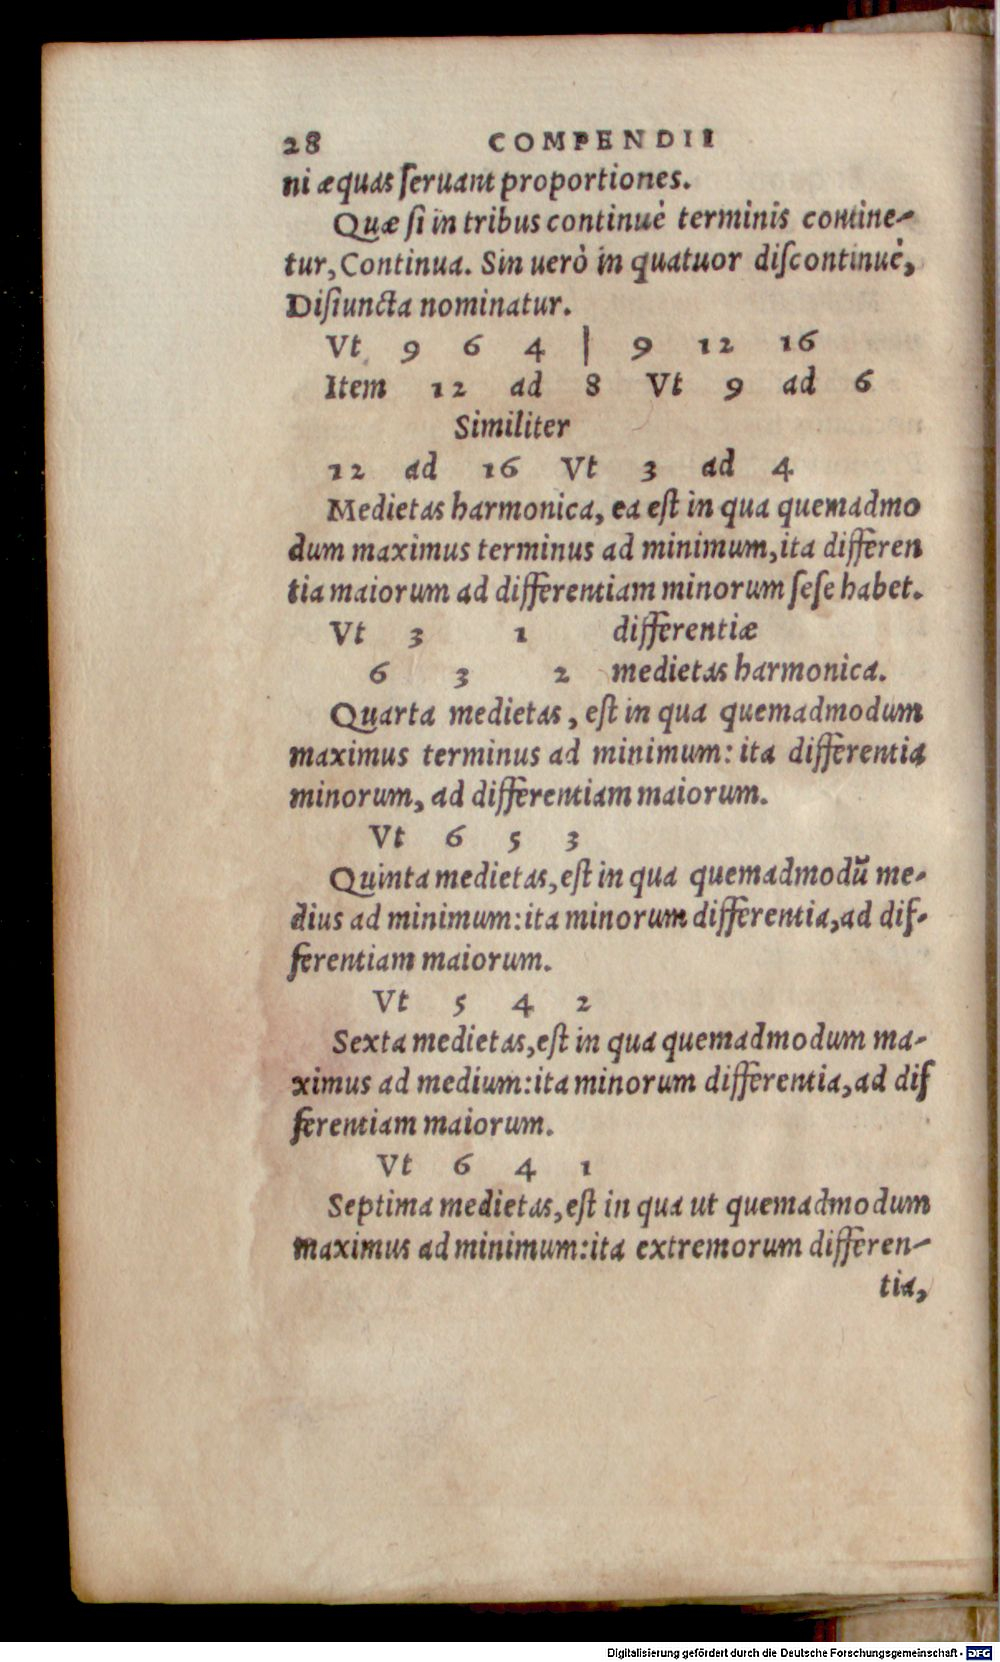 28 COMPENDII
ni æquas ſeruant proportiones.
Quæ ſi in tribus continuè terminis contine-
tur, Continua. Sin uerò in quatuor diſcontinuè,
Diſiuncta nominatur.
Vt 9 6 4 | 9 12 16
Item 12 ad 8 Vt 9 ad 6
Similiter
12 ad 16 Vt 3 ad 4
Medietas harmonica, ea eſt in qua quemadmo
dum maximus terminus ad minimum, ita differen
tia maiorum ad differentiam minorum ſeſe habet.
Vt 3 1 differentiæ
6 3 2 medietas harmonica.
Quarta medietas, eſt in qua quemadmodum
maximus terminus ad minimum: ita differentia
minorum, ad differentiam maiorum.
Vt 6 5 3
Quinta medietas, eſt in qua quemadmodū me-
dius ad minimum: ita minorum differentia, ad dif-
ferentiam maiorum.
Vt 5 4 2
Sexta medietas, eſt in qua quemadmodum ma-
ximus ad medium: ita minorum differentia, ad dif
ferentiam maiorum.
Vt 6 4 1
Septima medietas, eſt in qua ut quemadmodum
maximus ad minimum: ita extremorum differen-
tia,
Digitalisierung gefördert durch die Deutsche Forschungsgemeinschaft - DFG